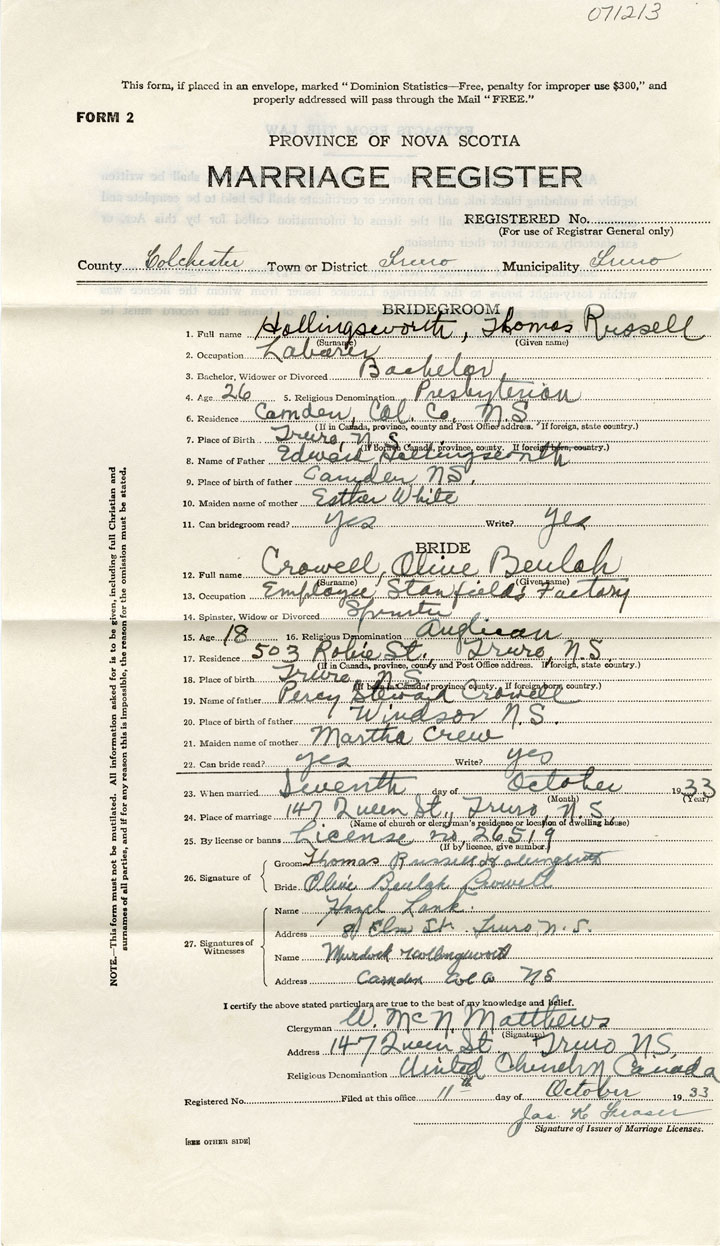 071213
This form, if placed in an envelope, marked "Dominion Statistics—Free, penalty for improper use $300," and
properly addressed will pass through the Mail "FREE."
FORM 2
PROVINCE OF NOVA SCOTIA
MARRIAGE REGISTER
REGISTERED No.
(For use of Registrar General only)
County Colchester Town or District Truro Municipality Truro
BRIDEGROOM
1. Full name Hollingsworth, Thomas Russell
(Surname) (Given name)
2. Occupation Laborer
3. Bachelor, Widower or Divorced Bachelor
4. Age 26 5. Religious Denomination Presbyterian
6. Residence Camden, Col. Co. N.S
(If in Canada, province, county and Post Office address. If foreign, state country.)
7. Place of Birth Truro, N.S.
(If born in Canada, province, county. If foreign born, country.)
8. Name of Father Edward Hollingsworth
9. Place of birth of father Camden NS.
10. Maiden name of mother Esther White
11. Can bridegroom read? yes Write? yes
BRIDE
12. Full name Crowell, Olive Beulah
(Surname) (Given name)
13. Occupation Employee Stanfields Factory
14. Spinster, Widow or Divorced Spinster
15. Age 18 16. Religious Denomination Anglican
17. Residence 503 Robie St., Truro, N.S.
(If in Canada, province, county and Post Office address. If foreign, state country.)
18. Place of birth Truro, N.S.
(If born in Canada, province, county. If foreign born, country.)
19. Name of father Percy Steward Crowell
20. Place of birth of father Windsor N.S.
21. Maiden name of mother Martha Crew
22. Can bride read? yes Write? yes
23. When married Seventh day of October 1933
(Month) (Year)
24. Place of marriage 147 Queen St., Truro, N.S.
(Name of church or clergyman's residence or location of dwelling house)
25. By license or banns License no. 26519
(If by licence, give number)
26. Signature of
Groom Thomas Russell Hollingsworth
Bride Olive Beulah Crowell
27. Signatures of Witnesses
Name Hazel Lank.
Address 81 Elm St. Truro, N.S.
Name Murdock Hollingsworth
Address Camden Col Co NS
I certify the above stated particulars are true to the best of my knowledge and belief.
Clergyman W. McN. Matthews
(Signature)
Address 147 Queen St Truro N.S.
Religious Denomination United Church of Canada
Registered No. Filed at this office 11th day of October 1933
Jas. K Fraser
Signature of Issuer of Marriage Licenses.
[SEE OTHER SIDE]
NOTE.—This form must not be mutilated. All information asked for is to be given, including full Christian and
surnames of all parties, and if for any reason this is impossible, the reason for the omission must be stated.